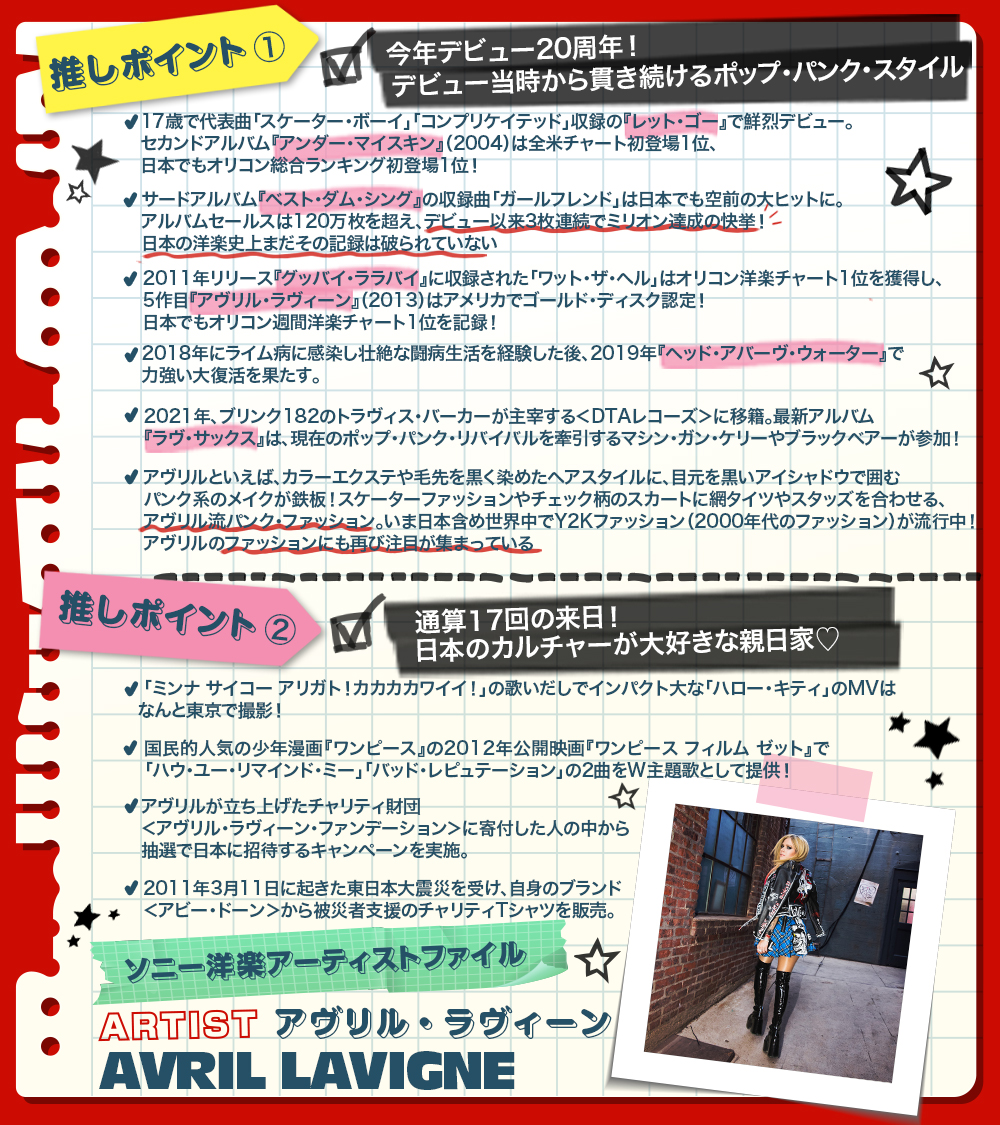 推しポイント①
今年デビュー20周年！
デビュー当時から貫き続けるポップ・パンク・スタイル
17歳で代表曲「スケーター・ボーイ」「コンプリケイテッド」収録の『レット・ゴー』で鮮烈デビュー。
セカンドアルバム『アンダー・マイスキン』（2004）は全米チャート初登場1位、
日本でもオリコン総合ランキング初登場1位！
サードアルバム『ベスト・ダム・シング』の収録曲「ガールフレンド」は日本でも空前の大ヒットに。
アルバムセールスは120万枚を超え、デビュー以来3枚連続でミリオン達成の快挙！
日本の洋楽史上まだその記録は破られていない
2011年リリース『グッバイ・ララバイ』に収録された「ワット・ザ・ヘル」はオリコン洋楽チャート1位を獲得し、
5作目『アヴリル・ラヴィーン』（2013）はアメリカでゴールド・ディスク認定！
日本でもオリコン週間洋楽チャート1位を記録！
2018年にライム病に感染し壮絶な闘病生活を経験した後、2019年『ヘッド・アバーヴ・ウォーター』で
力強い大復活を果たす。
2021年、ブリンク182のトラヴィス・バーカーが主宰する＜DTAレコーズ＞に移籍。最新アルバム
『ラヴ・サックス』は、現在のポップ・パンク・リバイバルを牽引するマシン・ガン・ケリーやブラックベアーが参加！
アヴリルといえば、カラーエクステや毛先を黒く染めたヘアスタイルに、目元を黒いアイシャドウで囲む
パンク系のメイクが鉄板！スケーターファッションやチェック柄のスカートに網タイツやスタッズを合わせる、
アヴリル流パンク・ファッション。いま日本含め世界中でY2Kファッション（2000年代のファッション）が流行中！
アヴリルのファッションにも再び注目が集まっている
推しポイント②
通算17回の来日！
日本のカルチャーが大好きな親日家♡
「ミンナ サイコー アリガト！カカカカワイイ！」の歌いだしでインパクト大な「ハロー・キティ」のMVは
なんと東京で撮影！
国民的人気の少年漫画『ワンピース』の2012年公開映画『ワンピース フィルム ゼット』で
「ハウ・ユー・リマインド・ミー」「バッド・レピュテーション」の2曲をW主題歌として提供！
アヴリルが立ち上げたチャリティ財団
＜アヴリル・ラヴィーン・ファンデーション＞に寄付した人の中から
抽選で日本に招待するキャンペーンを実施。
2011年3月11日に起きた東日本大震災を受け、自身のブランド
＜アビー・ドーン＞から被災者支援のチャリティTシャツを販売。
ソニー洋楽アーティストファイル
ARTIST アヴリル・ラヴィーン
AVRIL LAVIGNE